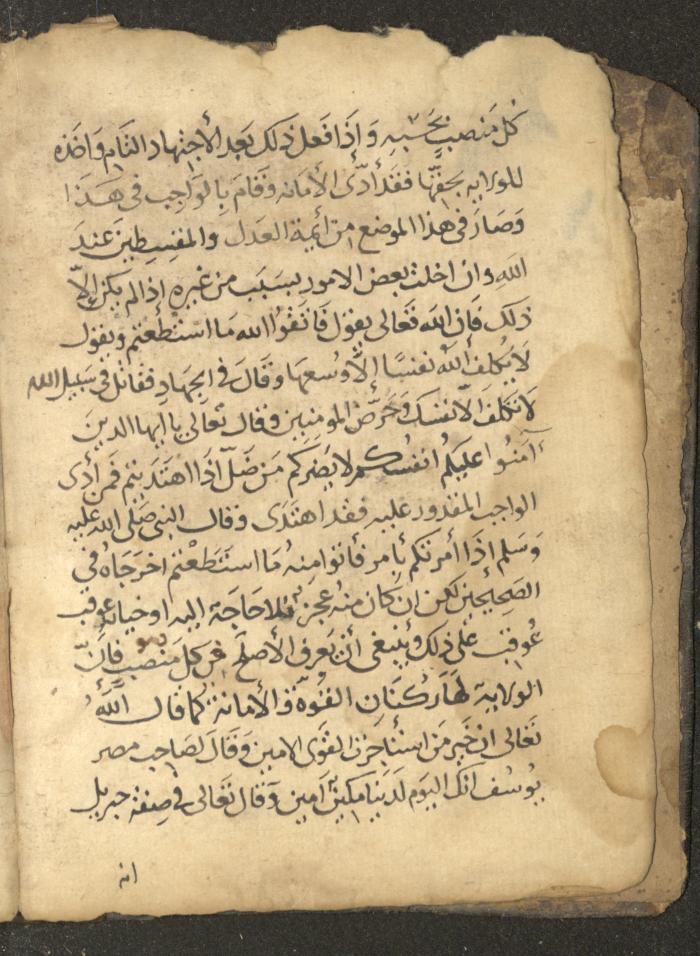 كل منصب بحسبه وإذا فعل ذلك بعد الاجتهاد التام واخذه
للولاية بحقها فقد أدّى الأمانه وقام بالواجب في هذا
وصار في هذا الموضع من ائمة العدل والمقسطين عند
الله وان اختلت بعض الامور بسبب من غيره إذا لم يكن إلاّ
ذلك فإن الله تعالى يقول فاتقوا الله ما استطعتم ويقول
لا يكلف الله نفسا إلا وسعها وقال في الجهاد فقاتل في سبيل الله
لا تكلف الا نفسك وحرّض المومنين وقال تعالى يا ايها الذين
آمنوا عليكم انفسكم لا يضركم من ضلّ اذا اهتديتم فمن أدى
الواجب المقدور عليه فقد اهتدى وقال النبي صلى الله عليه
وسلم إذا أمرتكم بأمر فأتوا منه ما استطعتم اخرجاه في
الصحيحين لكن ان كان منه عجز فلا حاجة إليه او خيانة عوقب
عوقب على ذلك وينبغي أن يعرف الأصلح في كل منصب فانّ
الولاية لها ركنان القوة والأمانة كما قال الله
تعالى ان خير من استأجرت القوى الامين وقال لصاحب مصر
يوسف انك اليوم لدينا مكين أمين وقال تعالى في صفة جبريل
انه